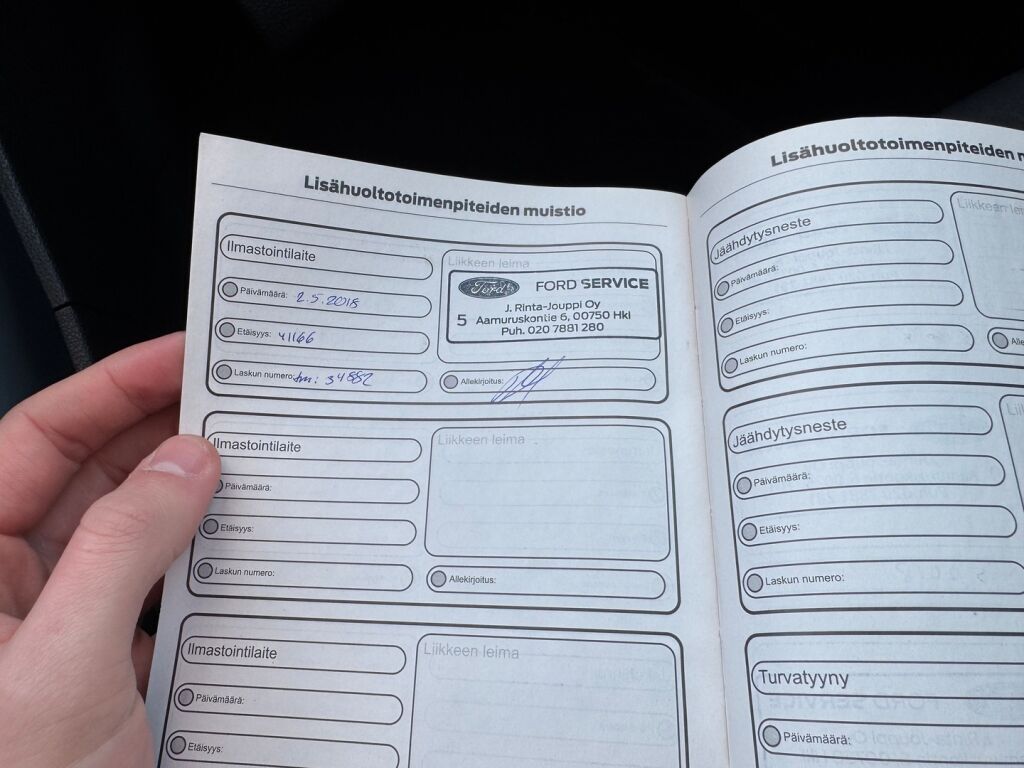 Lisähuoltotoimenpiteiden muistio
Ilmastointilaite
Päivämäärä: 2.5.2018
Etäisyys: 41166
Laskun numero: tm: 34882
Liikkeen leima
Ford FORD SERVICE
J. Rinta-Jouppi Oy
5 Aamuruskontie 6, 00750 Hki
Puh. 020 7881 280
Allekirjoitus:
Ilmastointilaite
Päivämäärä:
Etäisyys:
Laskun numero:
Liikkeen leima
Allekirjoitus:
Ilmastointilaite
Päivämäärä:
Etäisyys:
Liikkeen leima
Lisähuoltotoimenpiteiden
Jäähdytysneste
Päivämäärä:
Etäisyys:
Laskun numero:
Liikkeen
Jäähdytysneste
Päivämäärä:
Etäisyys:
Laskun numero:
Turvatyyny
Päivämäärä: